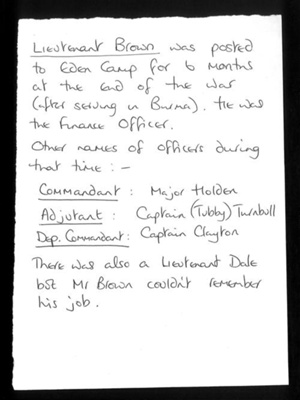 Lieutenant Brown was posted
to Eden Camp for 6 months
at the end of the war
(after serving in Burma). He was
the Finance Officer.
Other names of officers during
that time : -
Commandant : Major Holden
Adjutant : Captain (Tubby) Turnbull
Dep. Commandant : Captain Clayton
There was also a Lieutenant Dale
but Mr Brown couldn't remember
his job.